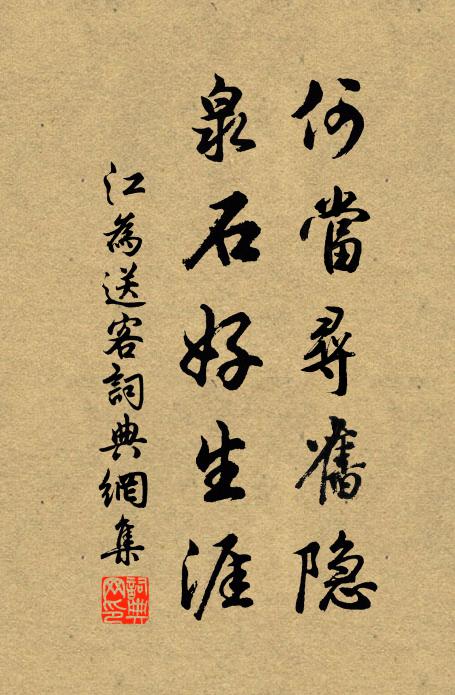 何當尋舊隐
泉石好生涯
江為送客詞典網集
詞典網印